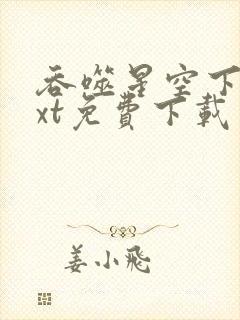 吞噬星空下
xt免費下載
姜小飛